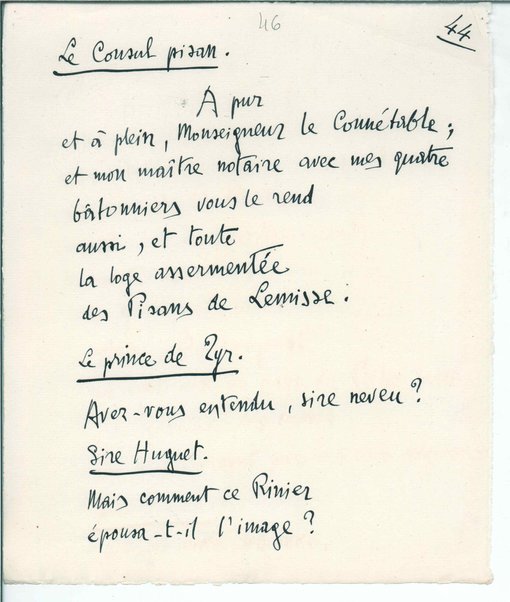 46
44
Le Consul pisan.
A pur
et à plein, Monseigneur le Connétable;
et mon maître notaire avec mes quatre
bâtonniers vous le rend
aussi, et toute
la loge assermentée
des Pisans de Lemisse.
Le prince de Tyr.
Avez-vous entendu, sire neveu?
Sire Huguet.
Mais comment ce Rinier
épousa-t-il l'image?